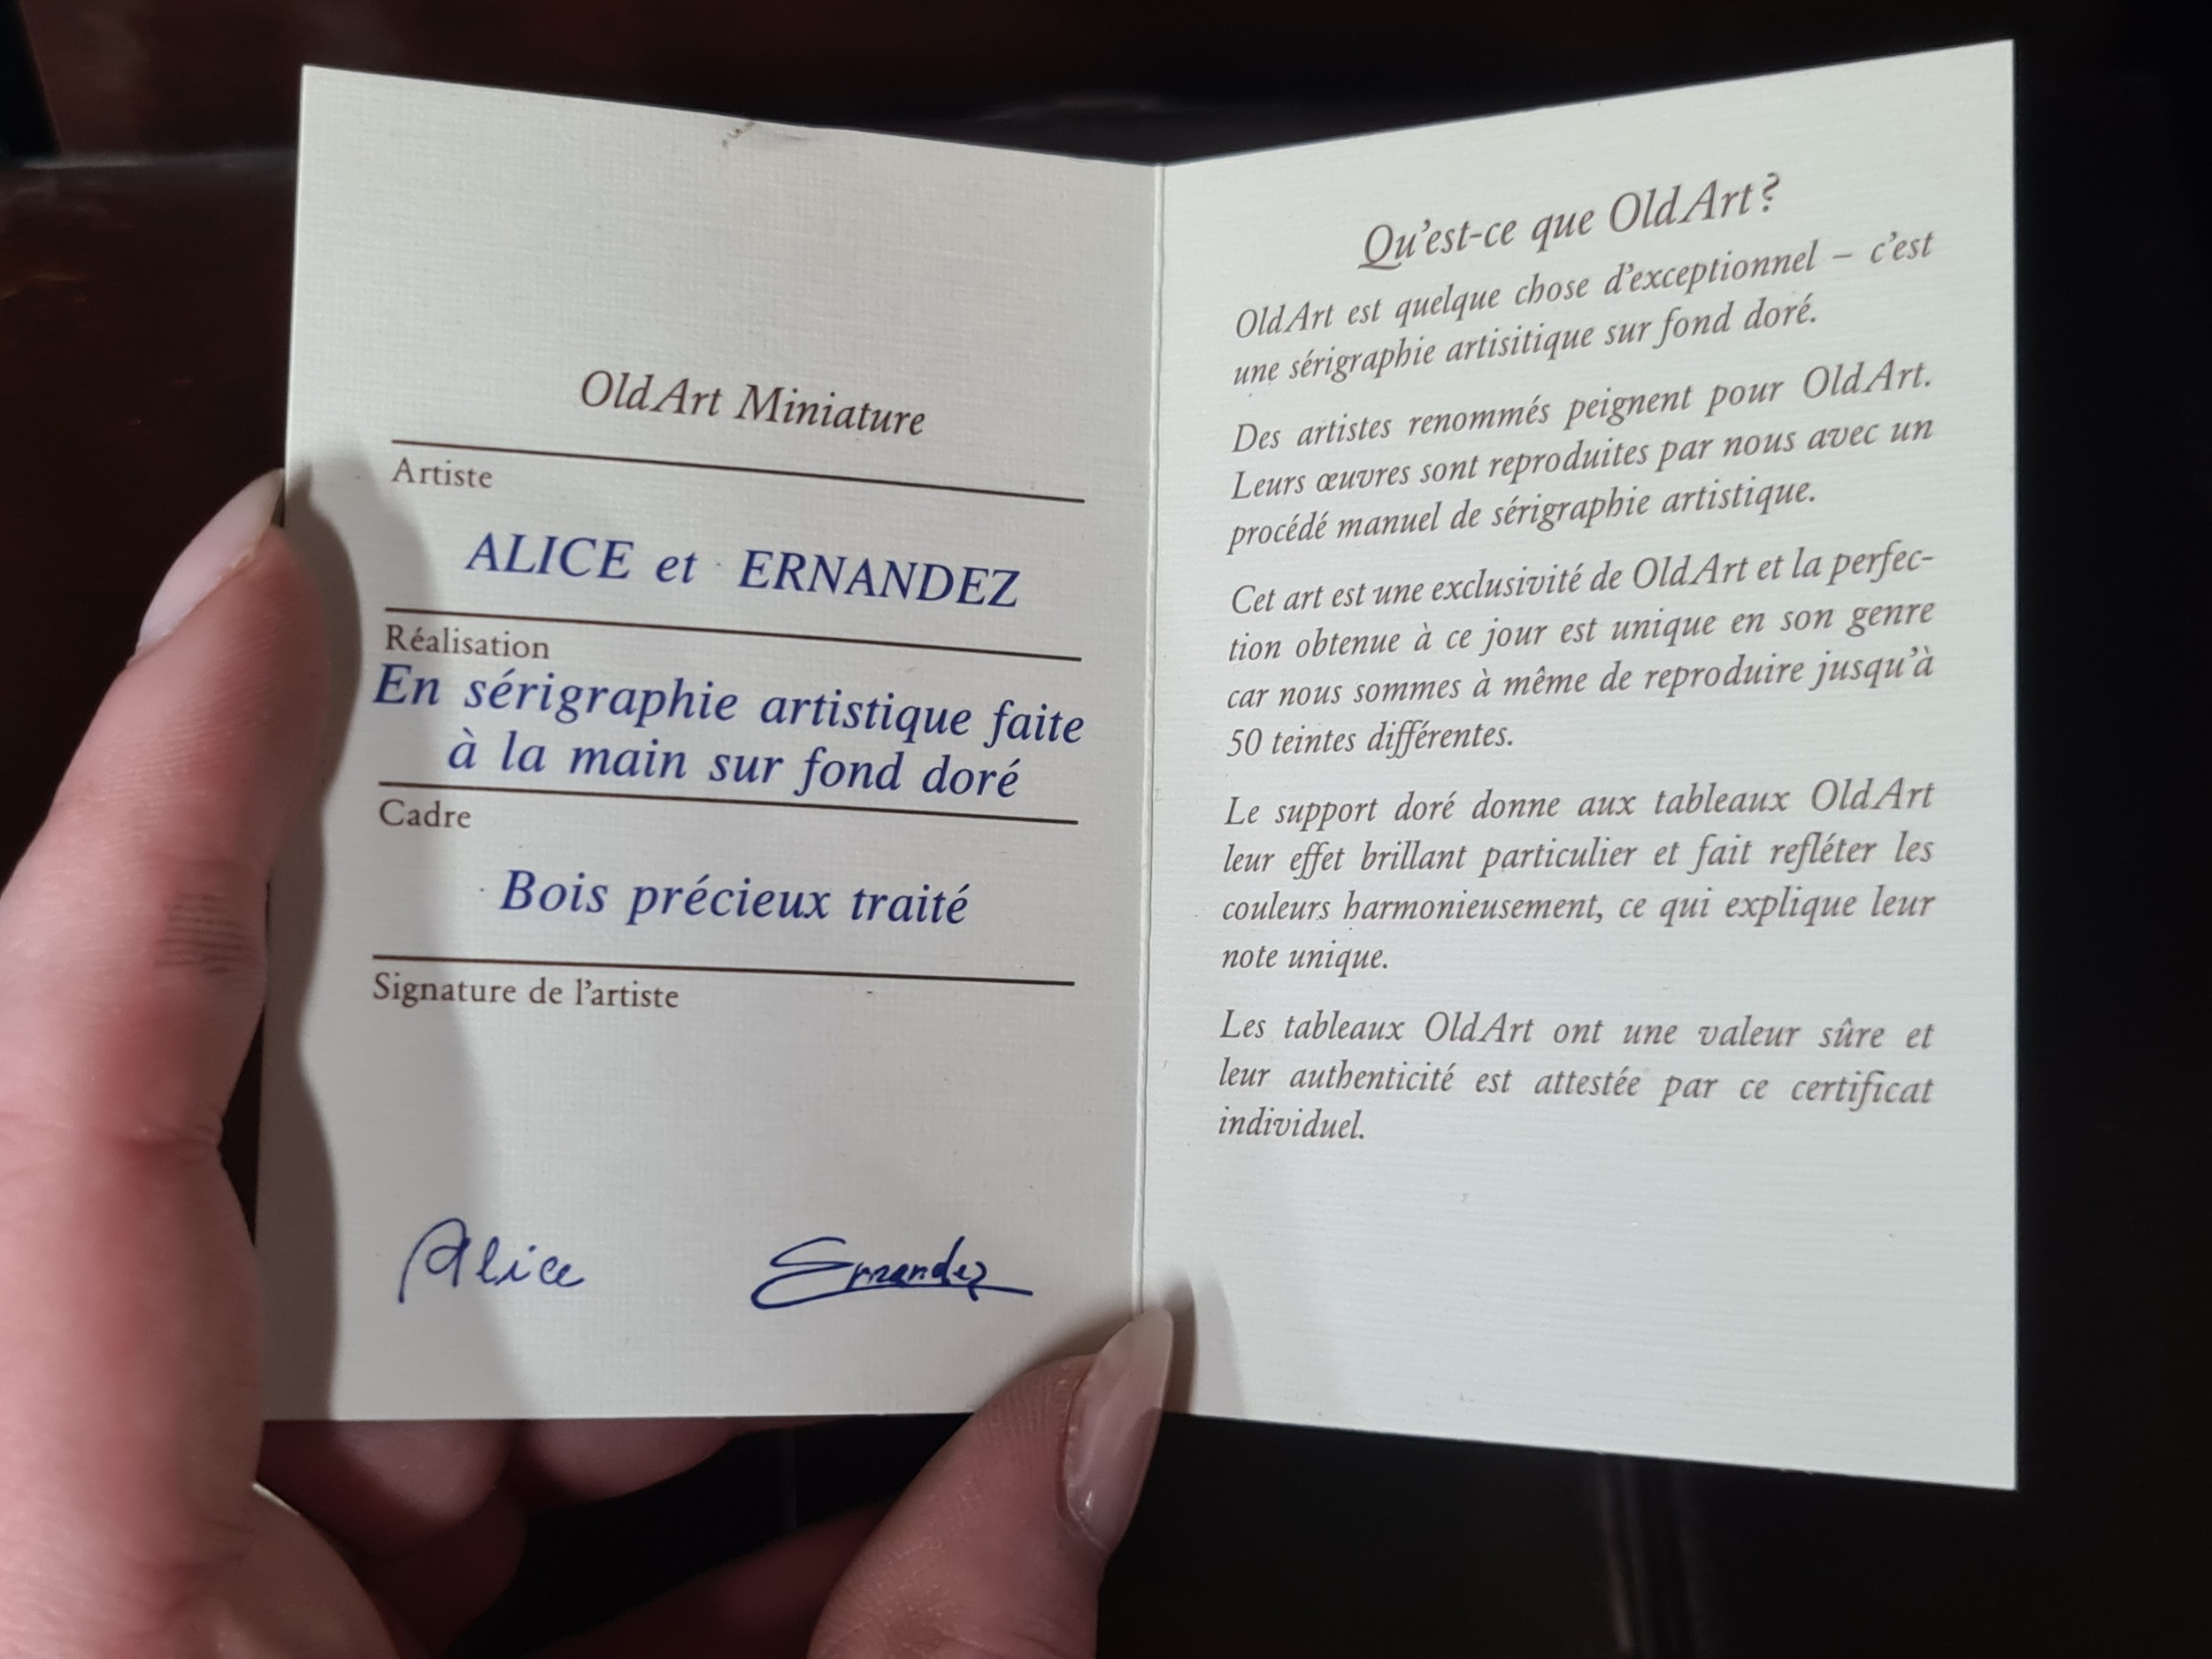 OldArt Miniature
Artiste
ALICE et ERNANDEZ
Réalisation
En sérigraphie artistique faite
à la main sur fond doré
Cadre
Bois précieux traité
Signature de l'artiste
Alice Ernandez
Qu'est-ce que OldArt?
OldArt est quelque chose d'exceptionnel – c'est
une sérigraphie artisitique sur fond doré.
Des artistes renommés peignent pour OldArt.
Leurs œuvres sont reproduites par nous avec un
procédé manuel de sérigraphie artistique.
Cet art est une exclusivité de OldArt et la perfec-
tion obtenue à ce jour est unique en son genre
car nous sommes à même de reproduire jusqu'à
50 teintes différentes.
Le support doré donne aux tableaux OldArt
leur effet brillant particulier et fait refléter les
couleurs harmonieusement, ce qui explique leur
note unique.
Les tableaux OldArt ont une valeur sûre et
leur authenticité est attestée par ce certificat
individuel.